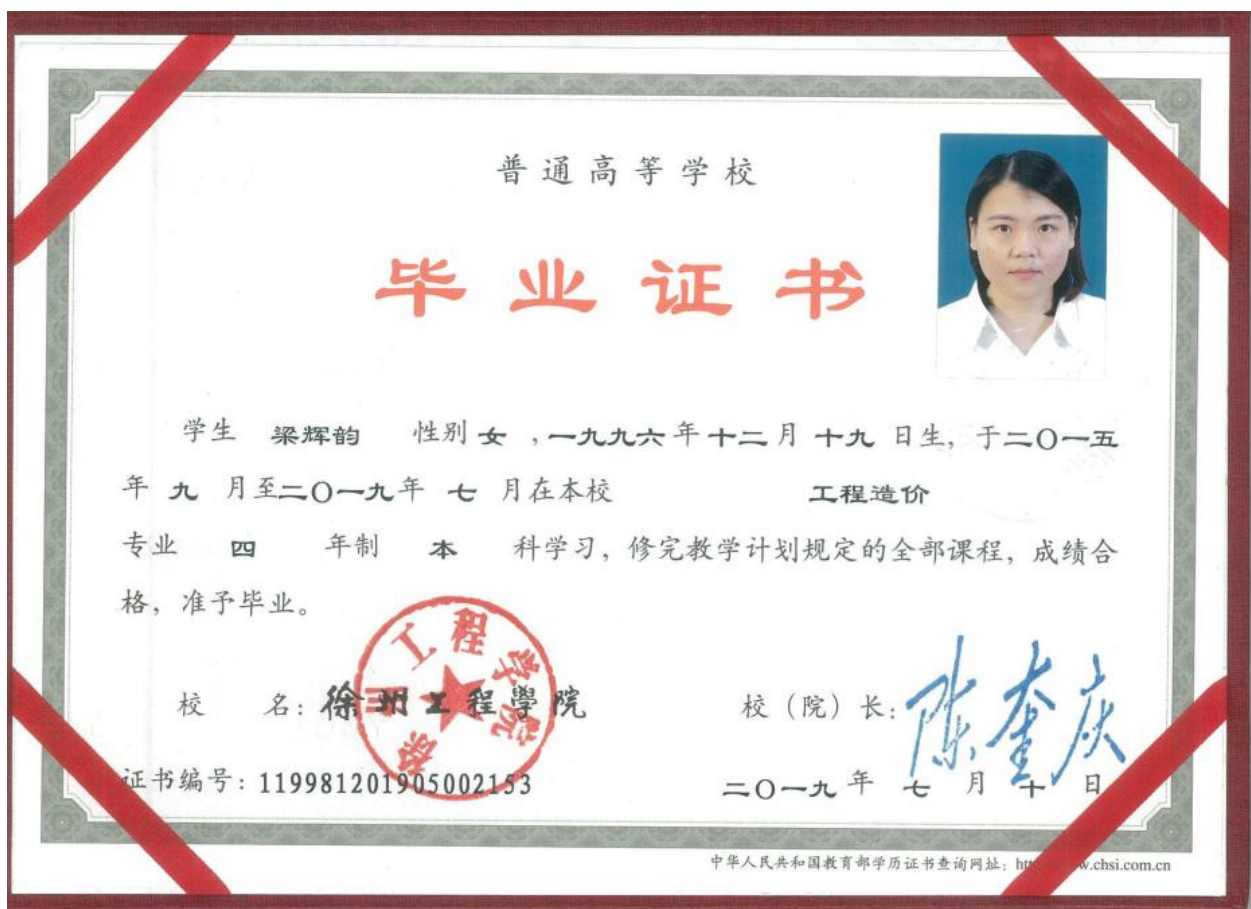 普通高等学校
毕业证书
学生 梁辉韵 性别 女 ,一九九六年十二月十九日生, 于二〇一五
年 九 月至二〇一九年 七 月在本校 工程造价
专业 四 年制 本 科学习, 修完教学计划规定的全部课程, 成绩合
格, 准予毕业。
徐州工程学院
校 名: 徐州工程學院 校 (院) 长: 陈奎庆
证书编号: 119981201905002153 二〇一九年 七 月 十 日
中华人民共和国教育部学历证书查询网址: w.chsi.com.cn